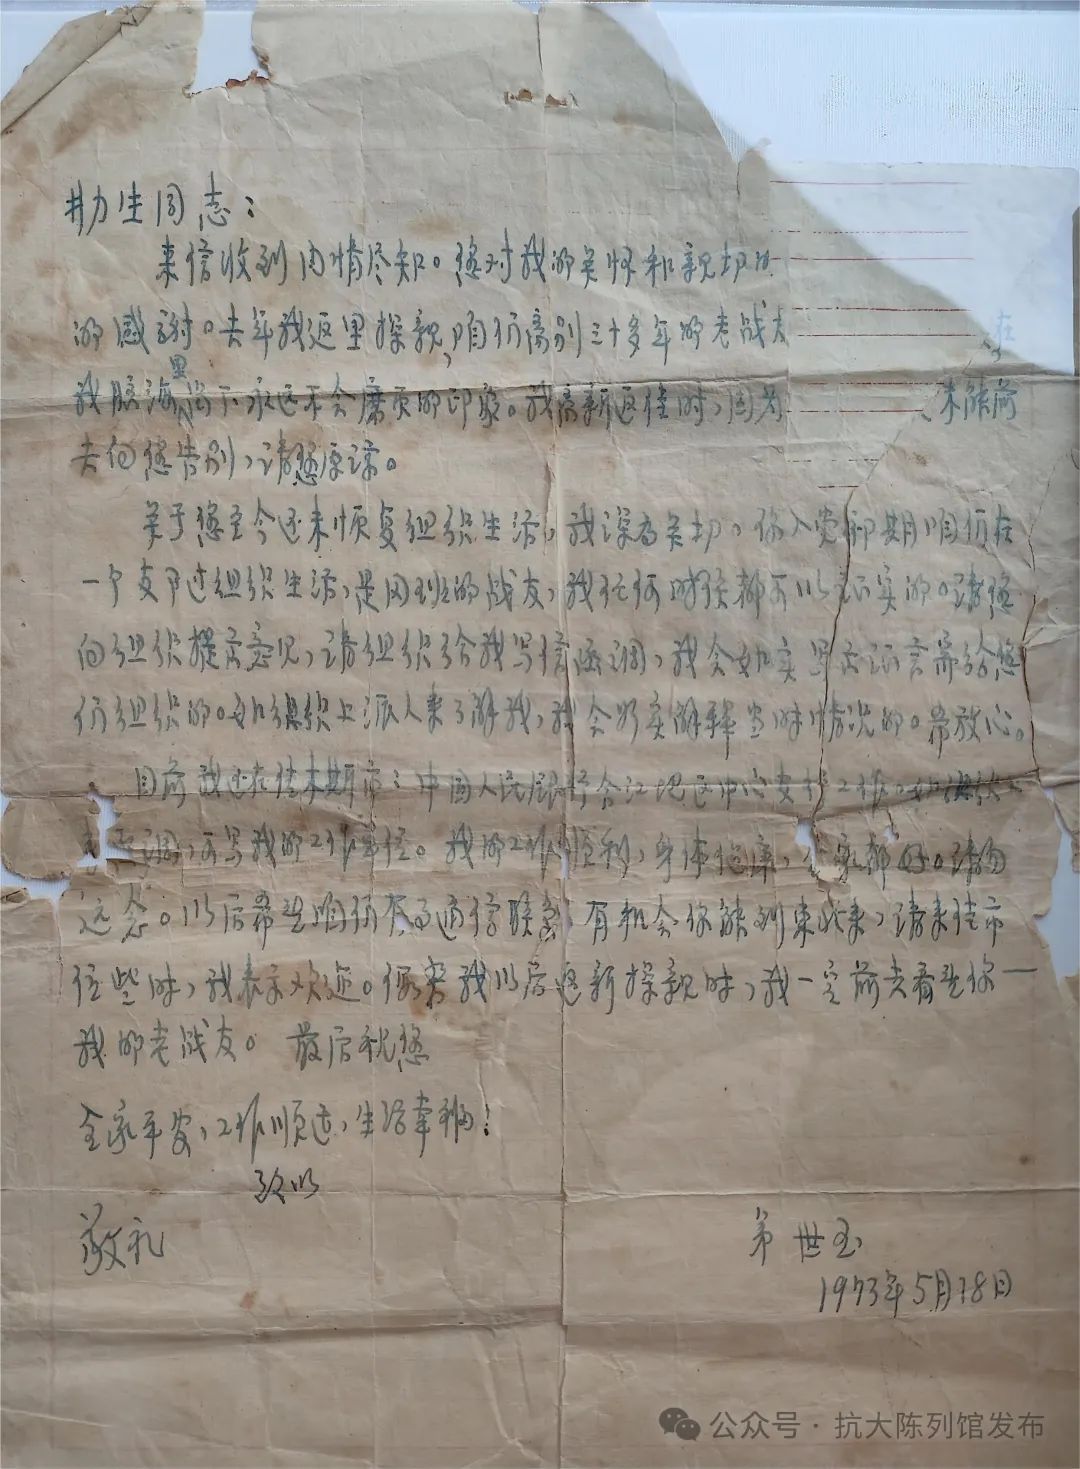 生同志：
来信收到内情尽知。您对我的关怀和亲切
的感谢。去年我返里探亲，咱们离别三十多年的老战友 在
我脑海里留下永远不会磨灭的印象。我离新返佳时，因为 未能前
去向您告别，请您原谅。
关于您至今还未恢复组织生活，我深为关切，你入党初期咱们在
一个支部过组织生活，是同班的战友，我任何时候都可以证实的。请您
向组织提意见，请组织给我写信函调，我会如实写证言寄给您
们组织的。如组织上派人来了解我，我会如实解释当时情况的。希放心。
目前我还在佳木斯市：中国人民银行合江地区中心支行工作。如组织
调，可写我的工作单位。我的工作顺利，身体健康，全家都好。请勿
远念。以后希望咱们 通信联 有机会你能到东北来，请来佳市
住些时，我表示欢迎。假若我以后返新探亲时，我一定前去看望你——
我的老战友。 最后祝您
全家平安，工作顺适，生活幸福！
致以
敬礼
弟 世玉
1973年5月18日
公众号·抗大陈列馆发布